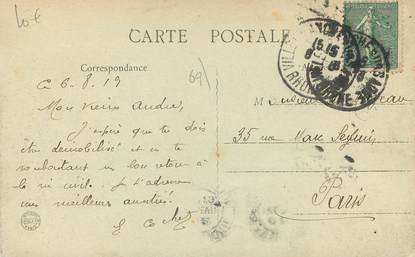 10€
CARTE POSTALE
Correspondance
69
Ce 6.8.19
Mon vieux André,
J'espère que tu dois
être démobilisé et en te
souhaitant un bon retour à
la vie civile. Je t'adresse
mes meilleurs amitiés!
35 rue Marc Seguin
Paris